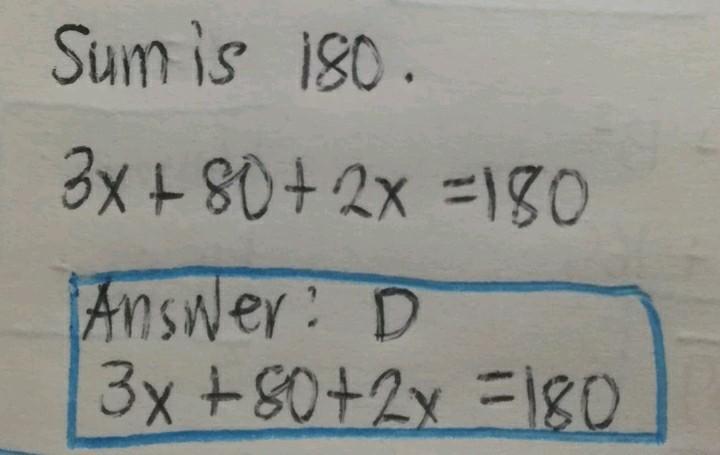 Sum is 180.
3x + 80 + 2x = 180
Answer: D
3x + 80 + 2x = 180